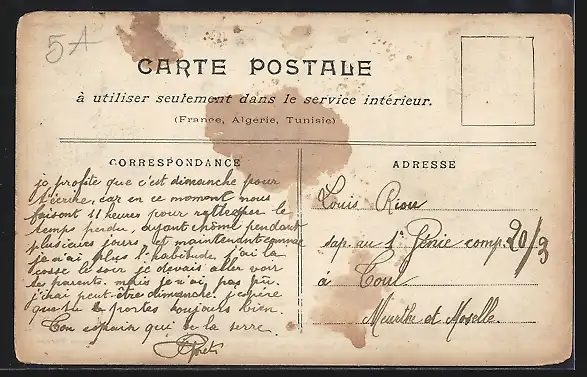 5A
CARTE POSTALE
à utiliser seulement dans le service intérieur.
(France, Algerie, Tunisie)
CORRESPONDANCE
je profite que c'est dimanche pour
t'écrire, car en ce moment nous
faisont 11 heures pour rattraper le
temps perdu, ayant chômé pendant
plusieurs jours, et maintenant comme
je n'ai plus l'habitude, j'ai la
cosse le soir je devais aller voir
tes parents. mais je n'ai pas pu.
j'irai peut être dimanche. j'espère
que tu te portes toujours bien.
Ton copain qui te la serre.
ADRESSE
Louis Riou
sap. au 1° Génie comp. 20/3
à Toul
Meurthe et Moselle.